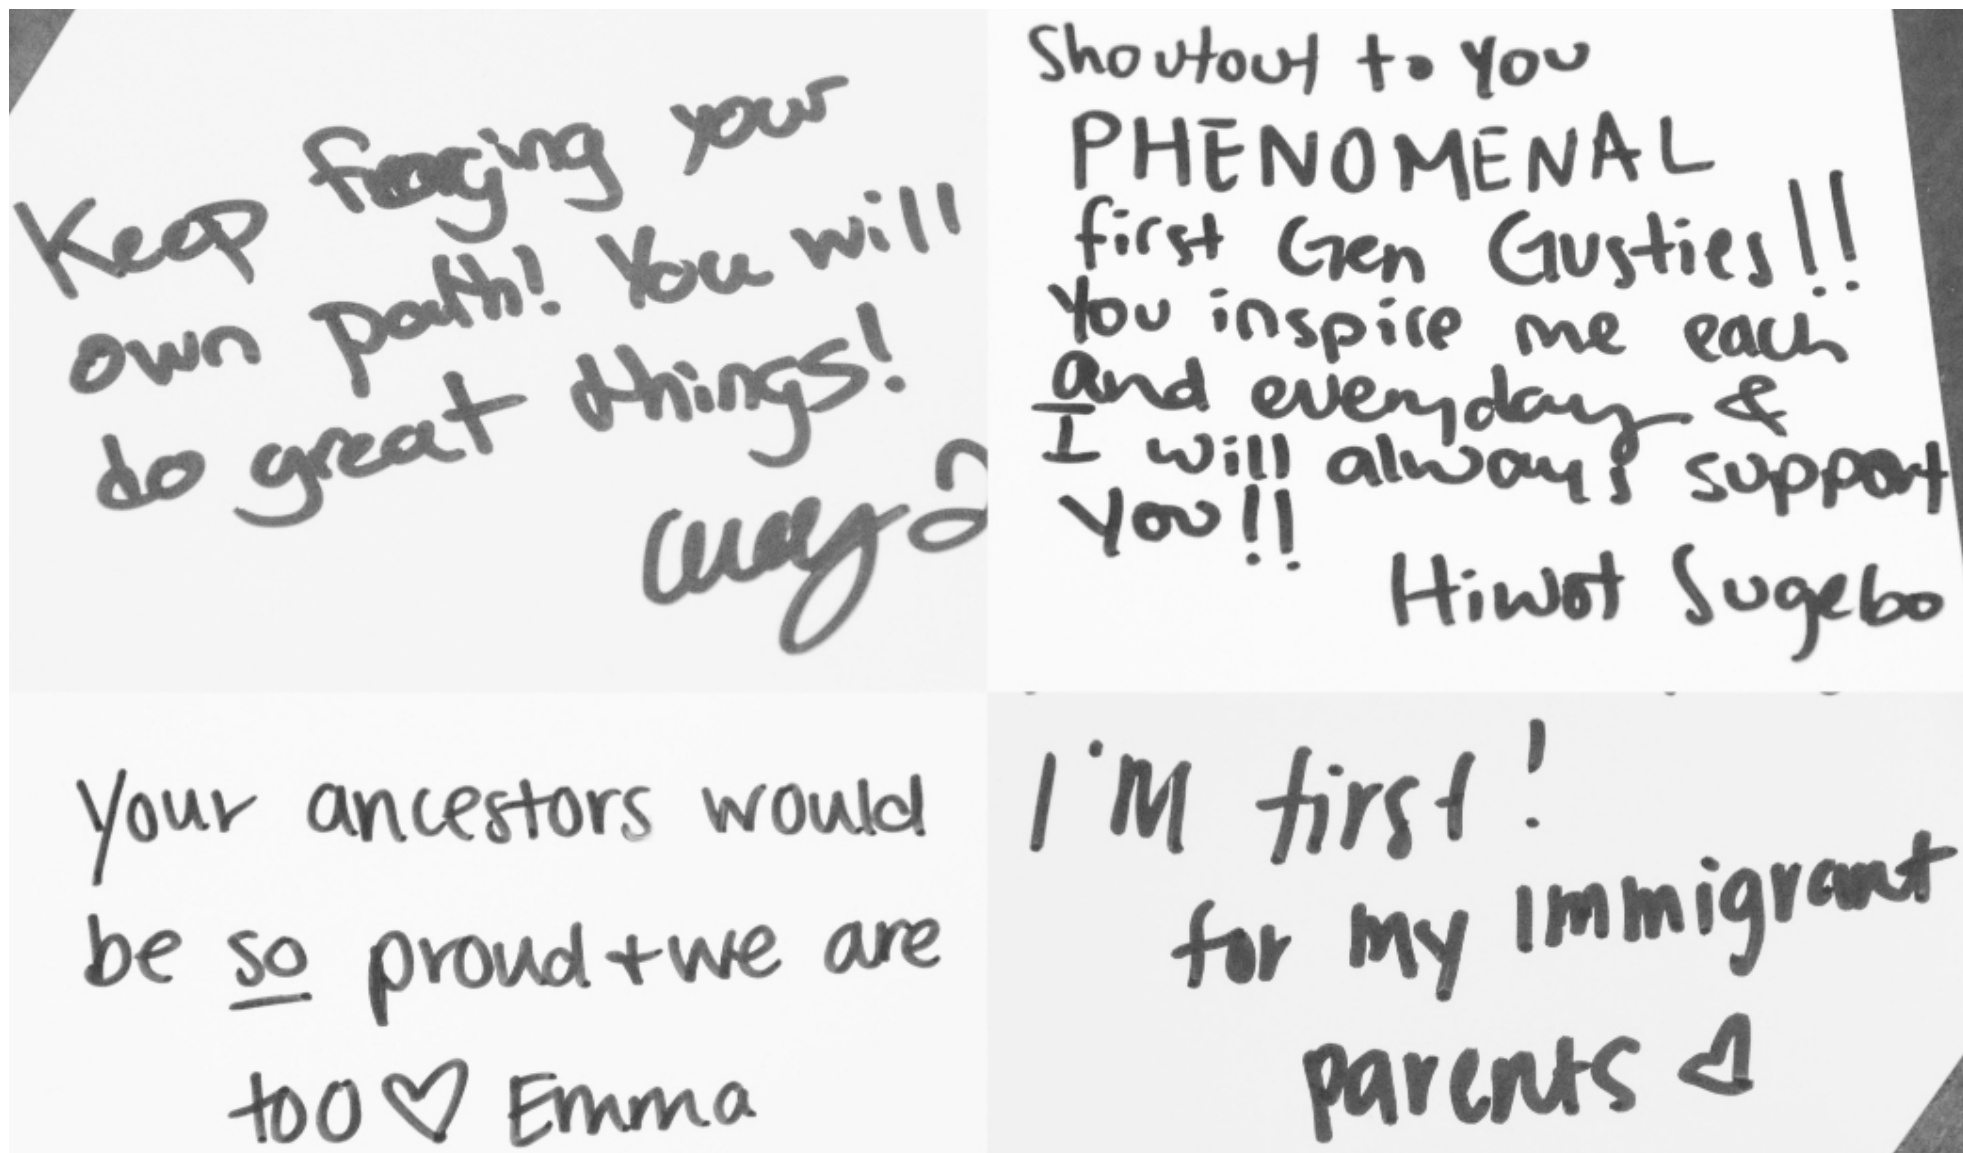 Keep forging your
own path! You will
do great things!
Shoutout to you
PHENOMENAL
first Gen Gusties!!
You inspire me each
and everyday &
I will always support
you!!
Hiwot Sugebo
Your ancestors would
be so proud + we are
too ♡ Emma
I'M first!
for my immigrant
parents ♡